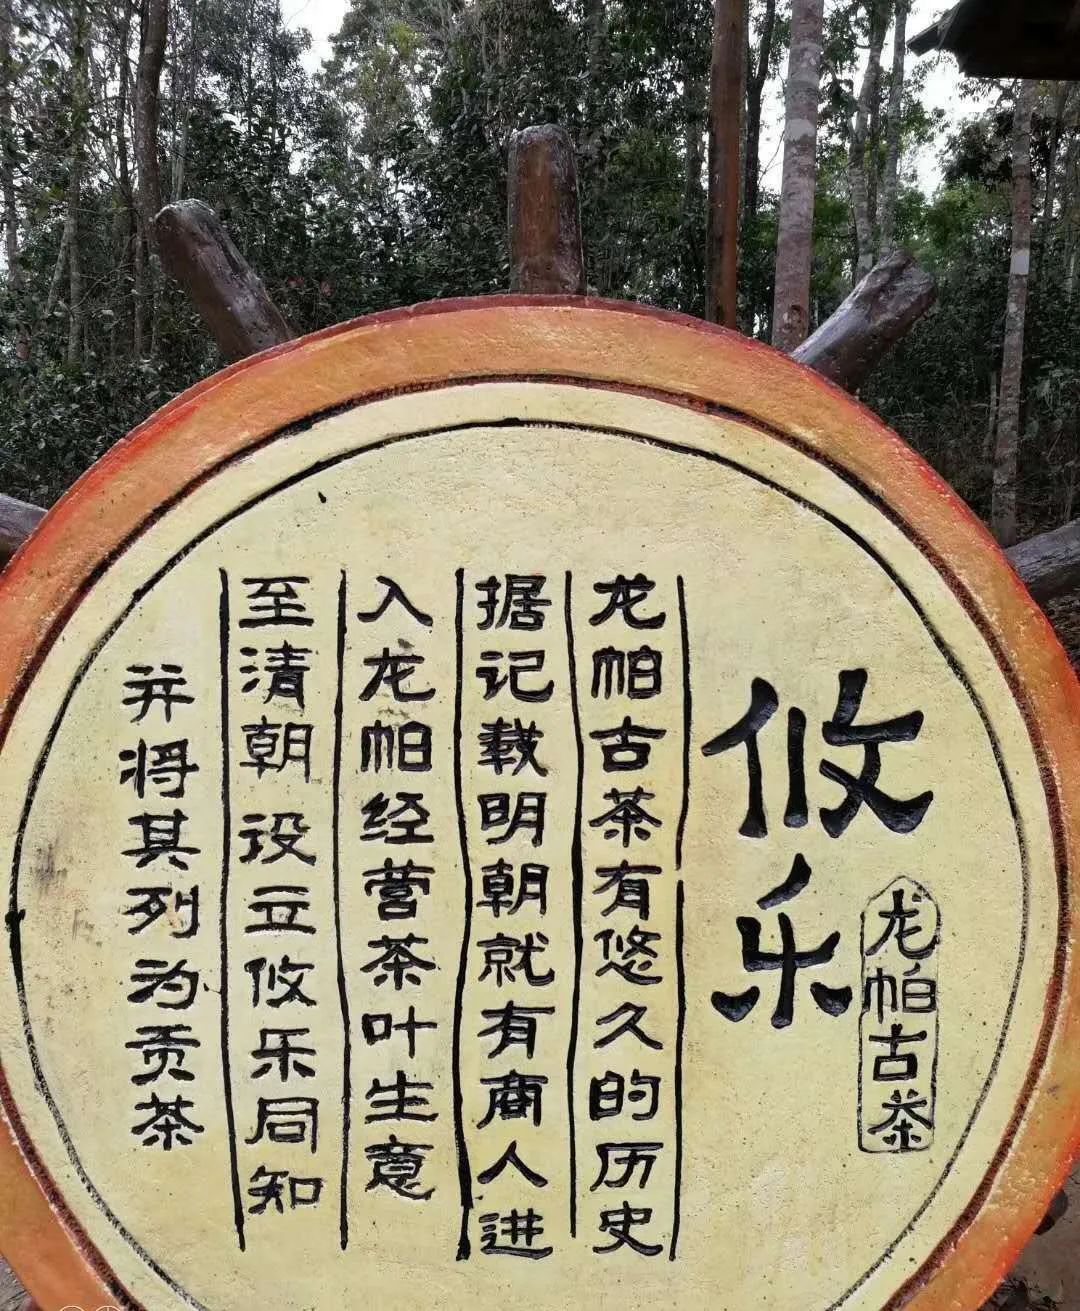 攸乐
龙帕古茶
龙帕古茶有悠久的历史
据记载明朝就有商人进
入龙帕经营茶叶生意
至清朝设立攸乐同知
并将其列为贡茶